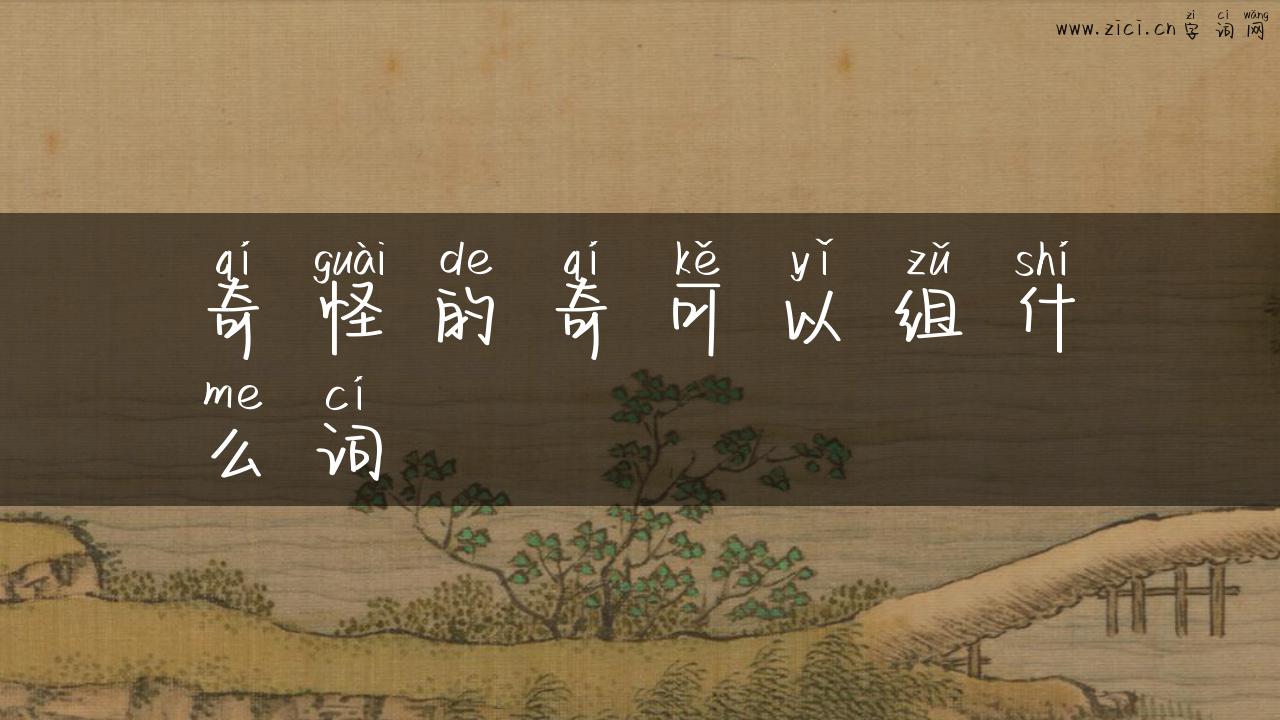 zì cí wǎng
www.zici.cn 字词网
qí guài de qí kě yǐ zǔ shí
奇怪的奇可以组什
me cí
么词